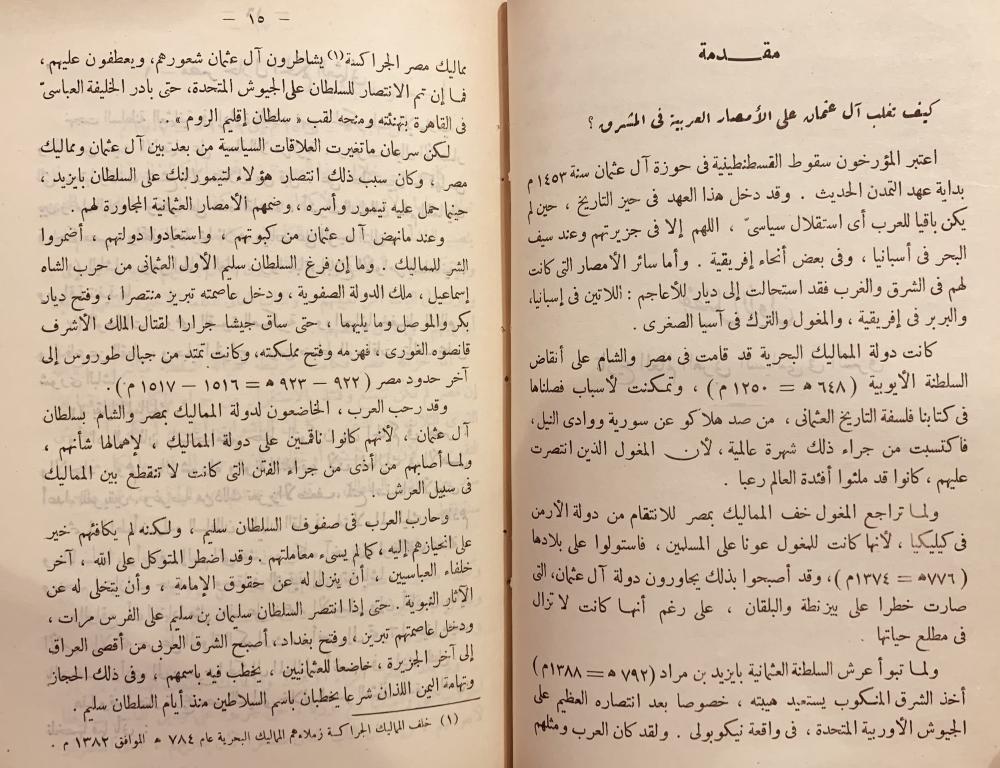 مقدمة
كيف تغلب آل عثمان على الأمصار العربية فى المشرق ؟
اعتبر المؤرخون سقوط القسطنطينية فى حوزة آل عثمان سنة ١٤٥٣ م
بداية عهد التمدن الحديث . وقد دخل هذا العهد فى حيز التاريخ ، حين لم
يكن باقيا للعرب أى استقلال سياسىّ ، اللهم إلا فى جزيرتهم وعند سيف
البحر فى أسبانيا ، وفى بعض أنحاء إفريقية . وأما سائر الأمصار التى كانت
لهم فى الشرق والغرب فقد استحالت إلى ديار للأعاجم : اللاتين فى إسبانيا،
والبربر فى إفريقية ، والمغول والترك فى آسيا الصغرى .
كانت دولة المماليك البحرية قد قامت فى مصر والشام على أنقاض
السلطنة الأيوبية ( ٦٤٨ هـ = ١٢٥٠ م ) ، وتمكنت لأسباب فصلناها
فى كتابنا فلسفة التاريخ العثمانى ، من صد هلاكو عن سورية ووادى النيل،
فاكتسبت من جراء ذلك شهرة عالمية ، لأن المغول الذين انتصرت
عليهم ، كانوا قد ملئوا أفئدة العالم رعبا .
ولما تراجع المغول خف المماليك بمصر للانتقام من دولة الأرمن
فى كيليكيا ، لأنها كانت للمغول عونا على المسلمين ، فاستولوا على بلادها
( ٧٧٦هـ = ١٣٧٤م ) ، وقد أصبحوا بذلك يجاورون دولة آل عثمان، التى
صارت خطرا على بيزنطة والبلقان ، على رغم أنها كانت لا تزال
فى مطلع حياتها .
ولما تبوأ عرش السلطنة العثمانية بايزيد بن مراد (٧٩٢ هـ = ١٣٨٨م)
أخذ الشرق المنكوب يستعيد هيبته ، خصوصا بعد انتصاره العظيم على
الجيوش الأوربية المتحدة ، فى واقعة نيكوبولى . ولقد كان العرب ومثلهم
— ١٥ —
مماليك مصر الجراكسة(١) يشاطرون آل عثمان شعورهم، ويعطفون عليهم ،
فما إن تم الانتصار للسلطان على الجيوش المتحدة، حتى بادر الخليفة العباسىّ
فى القاهرة بتهنئته ومنحه لقب « سلطان إقليم الروم » .
لكن سرعان ما تغيرت العلاقات السياسية من بعد بين آل عثمان ومماليك
مصر ، وكان سبب ذلك انتصار هؤلاء لتيمورلنك على السلطان بايزيد ،
حينما حمل عليه تيمور وأسره ، وضمهم الأمصار العثمانية المجاورة لهم .
وعند مانهض آل عثمان من كبوتهم ، واستعادوا دولتهم ، أضمروا
الشر للمماليك . وما إن فرغ السلطان سليم الأول العثمانى من حرب الشاه
إسماعيل ، ملك الدولة الصفوية ، ودخل عاصمته تبريز منتصرا ، وفتح ديار
بكر والموصل وما يليهما ، حتى ساق جيشا جرارا لقتال الملك الأشرف
قانصوه الغورى ، فهزمه وفتح مملكته، وكانت تمتد من جبال طوروس إلى
آخر حدود مصر ( ٩٢٢ – ٩٢٣ هـ = ١٥١٦ – ١٥١٧ م ) .
وقد رحب العرب ، الخاضعون لدولة المماليك بمصر والشام بسلطان
آل عثمان ، لأنهم كانوا ناقمين على دولة المماليك ، لإهمالها شأنهم ،
ولما أصابهم من أذى من جراء الفتن التى كانت لا تنقطع بين المماليك
فى سبيل العرش .
وحارب العرب فى صفوف السلطان سليم ، ولكنه لم يكافئهم خير
على انحيازهم إليه ، كما لم يسىء معاملتهم . وقد اضطر المتوكل على الله ، آخر
خلفاء العباسيين ، أن ينزل له عن حقوق الإمامة ، وأن يتخلى له عن
الآثار النبوية . حتى إذا انتصر السلطان سليمان بن سليم على الفرس مرات ،
ودخل عاصمتهم تبريز ، وفتح بغداد، أصبح الشرق العربى من أقصى العراق
إلى آخر الجزيرة ، خاضعا للعثمانيين ، يخطب فيه باسمهم ، وفى ذلك الحجاز
وتهامة اليمن اللذان شرعا يخطبان باسم السلاطين منذ أيام السلطان سليم .
(١) خلف المماليك الجراكسة زملاءهم المماليك البحرية عام ٧٨٤ هـ الموافق ١٣٨٢ م .